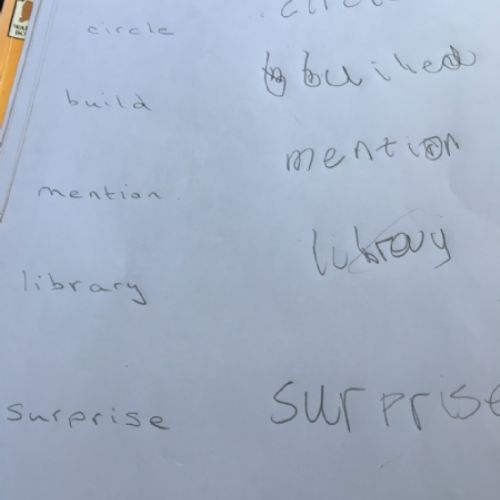 circle circle
build builed
mention mention
library library
surprise surprise